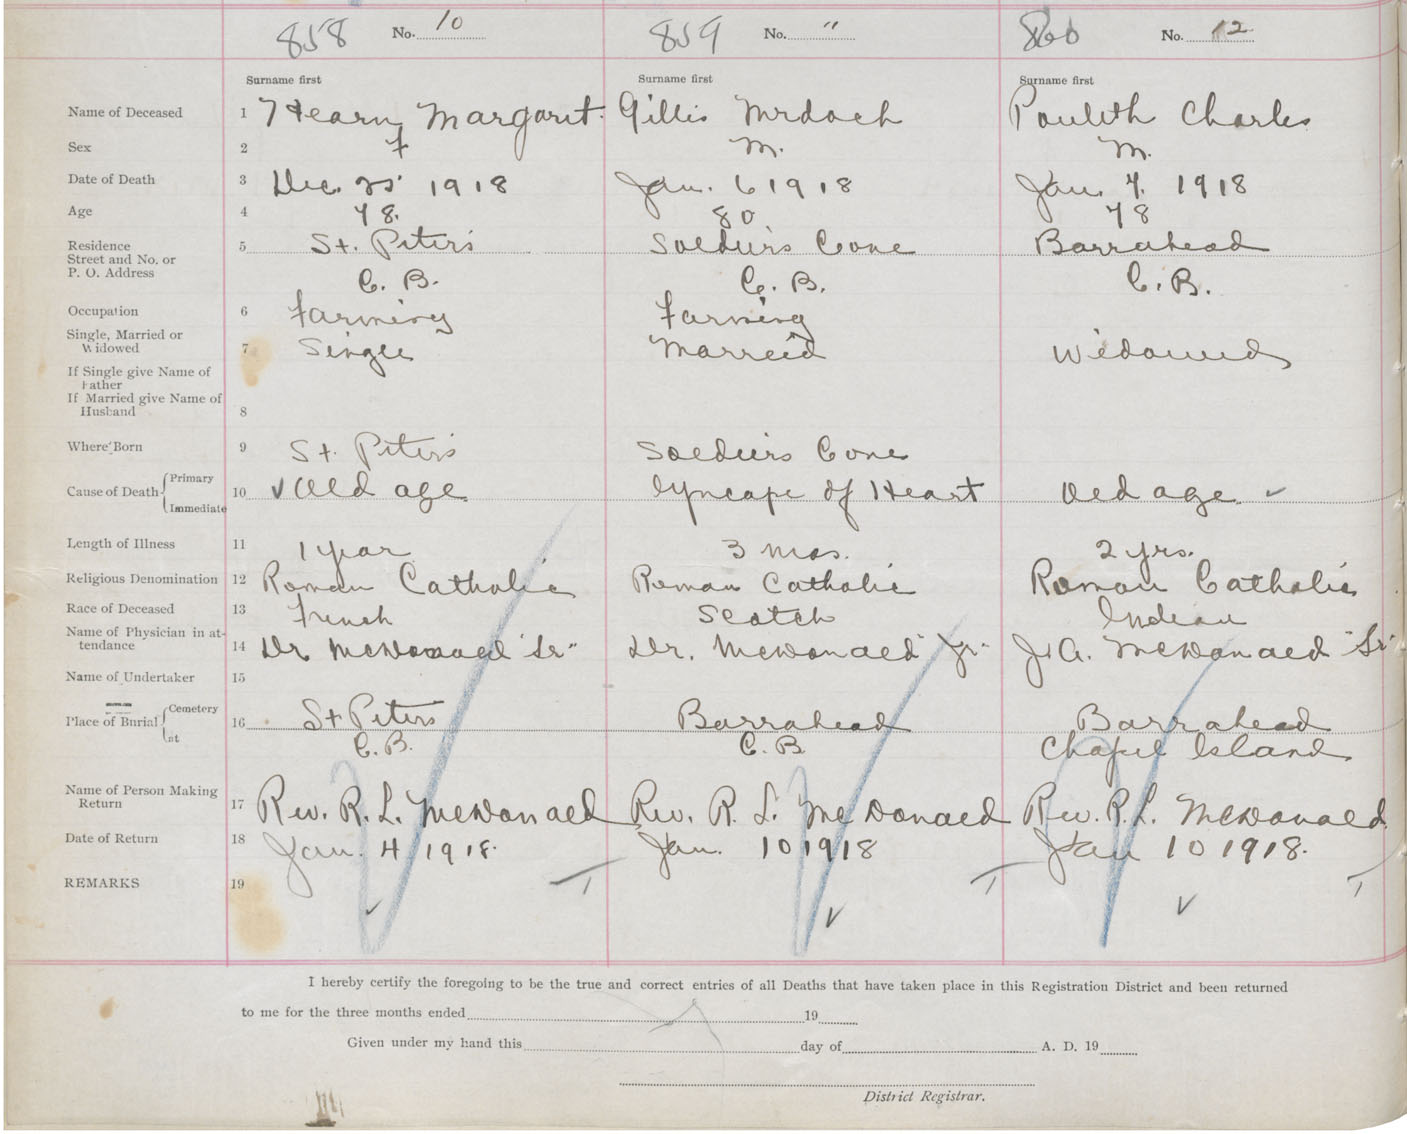 858 No. 10 859 No. " 860 No. 12
Surname first Surname first Surname first
Name of Deceased 1 Hearn Margaret. Gillis Mrdoch Pouleth Charles
Sex 2 F M. M.
Date of Death 3 Dec. 25 1918 Jan. 6 1918 Jan. 4. 1918
Age 4 78. 80 78
Residence 5 St. Peter's Soldier's Cove Barrahead
Street and No. or
P. O. Address C. B. C. B. C. B.
Occupation 6 Farming Farming
Single, Married or
Widowed 7 Single Married Widowed
If Single give Name of
Father
If Married give Name of
Husband 8
Where Born 9 St. Peter's Soldier's Cove
Cause of Death Primary
Immediate 10 Old age Syncape of Heart Old age
Length of Illness 11 1 year 3 mos. 2 yrs.
Religious Denomination 12 Roman Catholic Roman Catholic Roman Catholic
Race of Deceased 13 French Scotch Indian
Name of Physician in at-
tendance 14 Dr McDonald "Sr" Dr. McDonald "Jr" J. A. McDonald "Sr"
Name of Undertaker 15
Place of Burial Cemetery
at 16 St Peter's Barrahead Barrahead
C. B. C. B Chapel Island
Name of Person Making
Return 17 Rev. R. L. McDonald Rev. R. L. McDonald Rev. R. L. McDonald
Date of Return 18 Jan. 4 1918. Jan. 10 1918 Jan 10 1918.
REMARKS 19
I hereby certify the foregoing to be the true and correct entries of all Deaths that have taken place in this Registration District and been returned
to me for the three months ended 19
Given under my hand this day of A. D. 19
District Registrar.